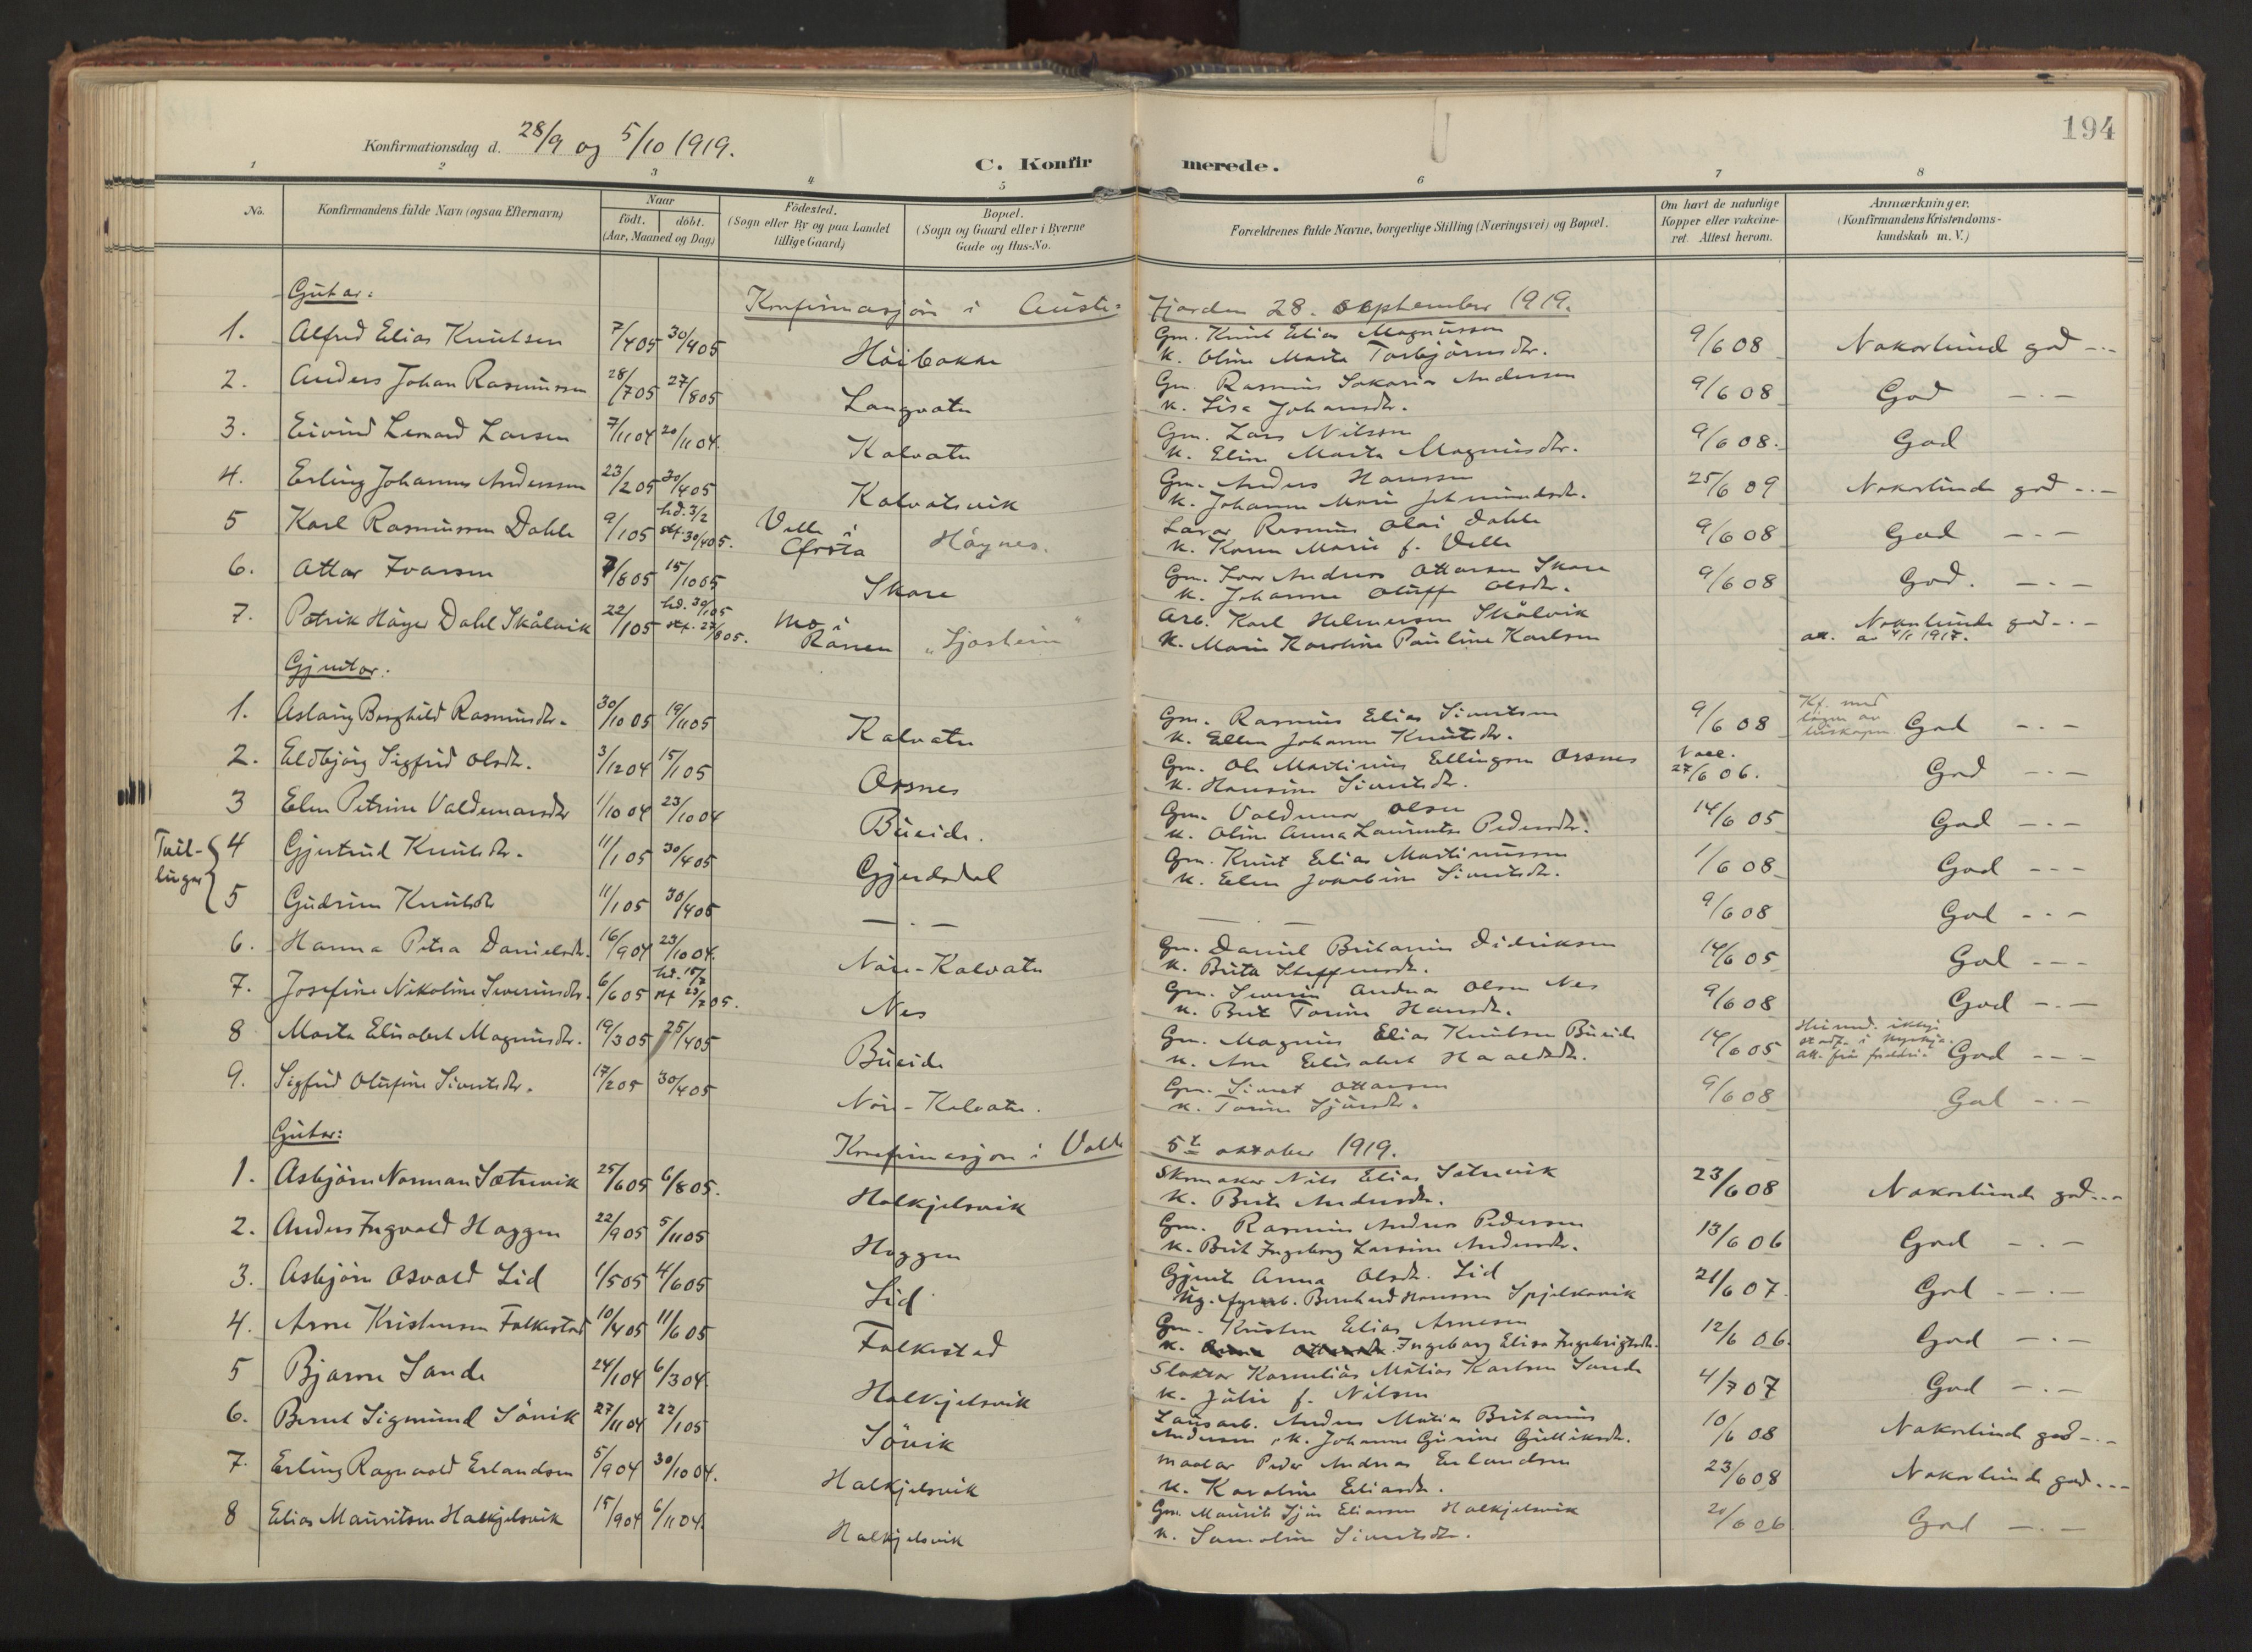 194
Konfirmationsdag d. 28/9 og 5/10 1919.
C. Konfirmerede.
1 2 3 4 5 6 7 8
No. Konfirmandens fulde Navn (ogsaa Efternavn) Naar født. døbt. (Aar, Maaned og Dag) Fødested. (Sogn eller By og paa Landet tillige Gaard) Bopæl. (Sogn og Gaard eller i Byerne Gade og Hus-No. Forældrenes fulde Navne, borgerlige Stilling (Næringsvei) og Bopæl. Om havt de naturlige Kopper eller vakcineret. Attest herom. Anmærkninger. (Konfirmandens Kristendomskundskab m. V.)
Gutar: Konfirmasjon i Austefjorden 28. september 1919.
1. Alfred Elias Knutsen 7/4 05 30/4 05 Höibakke Gm. Knut Elias Magnussen
K. Oline Marta Torbjörnsdtr. 9/6 08 Nokorlunde god -.-
2. Anders Johan Rasmussen 28/7 05 27/8 05 Langvatn Gm. Rasmus Sakarias Andersen
K. Lisa Johansdtr. 9/6 08 God -.-
3. Eivind Lenard Larsen 7/11 04 20/11 04. Kalvatn Gm. Lars Nilsen
K. Eline Marta Magnusdtr. 9/6 08. God
4. Erling Johannes Anderssen 23/2 05 30/4 05 Kalvatsvik Gm. Anders Hanssen
K. Johanne Marie 25/6 09 Nokorlunde god -.-
5 Karl Rasmussen Dahle 9/1 05 hd. 3/2 stf. 30/4 05. Velle i Örsta Höynes. Lærar Rasmus Olai Dahle
K. Karen Marie f. Velle 9/6 08 God -.-
6. Ottar Ivarsen 7/8 05 15/10 05 Skare Gm. Ivar Andreas Ottarsen Skare
K. Johanne Oluffe Olsdtr. 9/6 08 God. -.-
7. Patrik Höyer Dahl Skålvik 22/1 05 hd. 30/1 05 stf. 27/8 05. Mo i Ranen "Sjøheim" Arb. Karl Helmersen Skålvik
K. Marie Karoline Pauline Karlsen Nokorlunde god -.-
att. av 4/1 1917.
Gjentor:
1. Aslaug Borghild Rasmusdtr. 30/10 05 19/11 05 Kalvatn Gm. Rasmus Elias Sivertsen
K. Ellen Johanne Knutsdtr. 9/6 08 Kf. med
God -.-
2. Eldbjörg Sigfrid Olsdtr. 3/12 04 15/1 05 Orsnes Gm. Ole Martinus Ellingsen Orsnes
K. Hansine Sivertsdtr. Vacc. 27/6 06. God -.-
3 Elen Petrine Valdemarsdtr 1/10 04 23/10 04 Bueide. Gm. Valdemar Olsen
K. Oline Anna Laurentse Pedersdtr. 14/6 05 God -.-
Tvillingar 4 Gjertrud Knutsdtr. 11/1 05 30/4 05 Gjerdsdal Gm. Knut Elias Martinussen
K. Elen Joakime Sivertsdtr. 1/6 08 God -.-
5 Gudrun Knutsdtr 11/1 05 30/4 05 -.- -.- 9/6 08 God -.-
6. Hanna Petra Danielsdtr. 16/9 04 23/10 04. Nöre-Kalvatn Gm. Daniel Britanius Didriksen
K. Brita Steffensdtr. 14/6 05 God -.-
7. Josefine Nikoline Severinsdtr. 6/6 05 hd. 15/7 stf 23/7 05. Nes Gm. Severin Andreas Olsen Nes
K. Brit Torine Hansdtr. 9/6 08 God -.-
8 Marta Elisabet Magnusdtr. 19/3 05 25/4 05 Bueide Gm. Magnus Elias Knutsen Bueide
K. Ane Elisabet Haraldsdtr. 14/6 05 Heimed. ikkje
stadf. i kyrkja.
God -.-
9. Sigfrid Olufine Sivertsdtr. 17/2 05 30/4 05 Nöre-Kalvatn. Gm. Sivert Ottarsen
K. Torine Sjursdtr. 9/6 08 God -.-
Gutar: Konfirmasjon i Volda 5te oktober 1919.
1. Asbjörn Norman Sætrevik 25/6 05 6/8 05. Halkjelsvik Skomakar Nils Elias Sætrevik
K. Brite Andersdtr. 23/6 08 Nokorlunde god -.-
2. Anders Ingvald Haggen 22/9 05 5/11 05 Haggen Gm. Rasmus Andreas Pedersen
K. Brit Ingeborg Larsine Andersdtr. 13/6 06 God -.-
3. Asbjörn Osvald Lid 1/5 05 4/6 05 Lid Gjente Anna Olsdtr. Lid
Ug. fyrarb. Bernhard Hanssen Spjelkavik 21/6 07. God -.-
4. Arne Kristensen Folkestad 10/4 05 11/6 05 Folkestad Gm. Kristen Elias Arnesen
K. Ingeborg Elisa Ingebrigtsdtr. 12/6 06. God -.-
5 Bjarne Sande 24/1 04 6/3 04. Halkjelsvik Slaktar Kornelius Matias Karlsen Sande
K. Julie f. Nilsen 4/7 07 God -.-
6. Bernt Sigmund Sövik 27/11 04 22/1 05 Sövik Lausarb. Anders Matias Britanius
Andersen, K. Johanne Gurine Gulliksdtr. 10/6 08 Nokorlunde god -.-
7. Erling Ragnvald Erlandsen 5/9 04 30/10 04. Halkjelsvik Maalar Peder Andreas Erlandsen
K. Karoline Eliasdtr. 23/6 08 Nokorlunde god -.-
8 Elias Mauritsen Halkjelsvik 15/9 04 6/11 04. Halkjelsvik Gm. Maurits Sjur Eliassen Halkjelsvik
K. Samoline Sivertsdtr. 20/6 06 God -.-